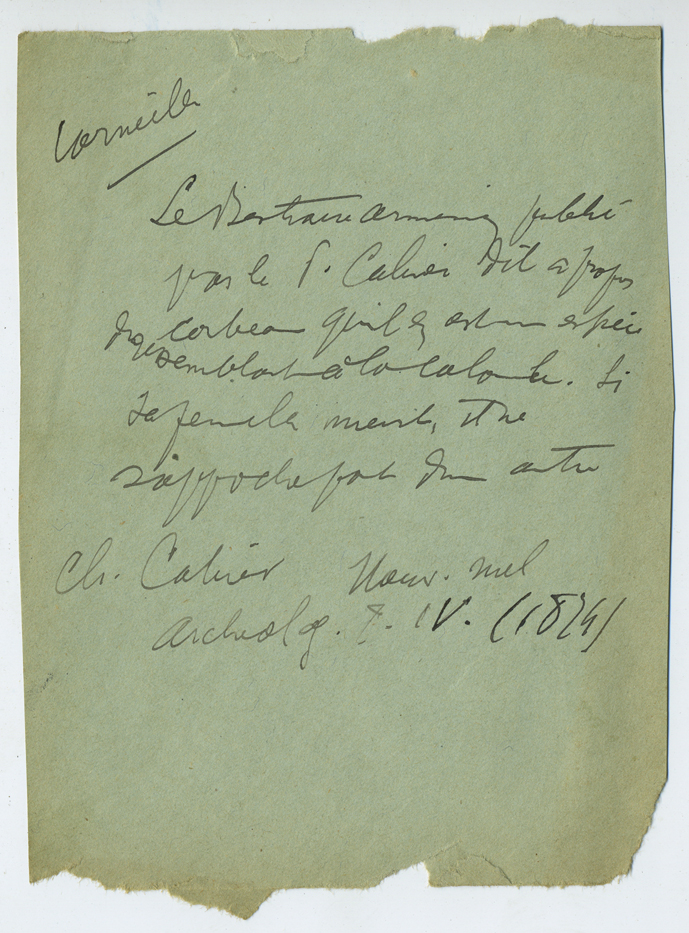 Corneille
Le Bestiaire arménien publié
par le P. Cahier dit à propos
du corbeau qu'il en est une espèce
ressemblant à la colombe. Si
sa femelle meurt, il ne
s'approche pas d'un autre
Ch. Cahier Nouv. mel
archeolog. T. IV. (1874)